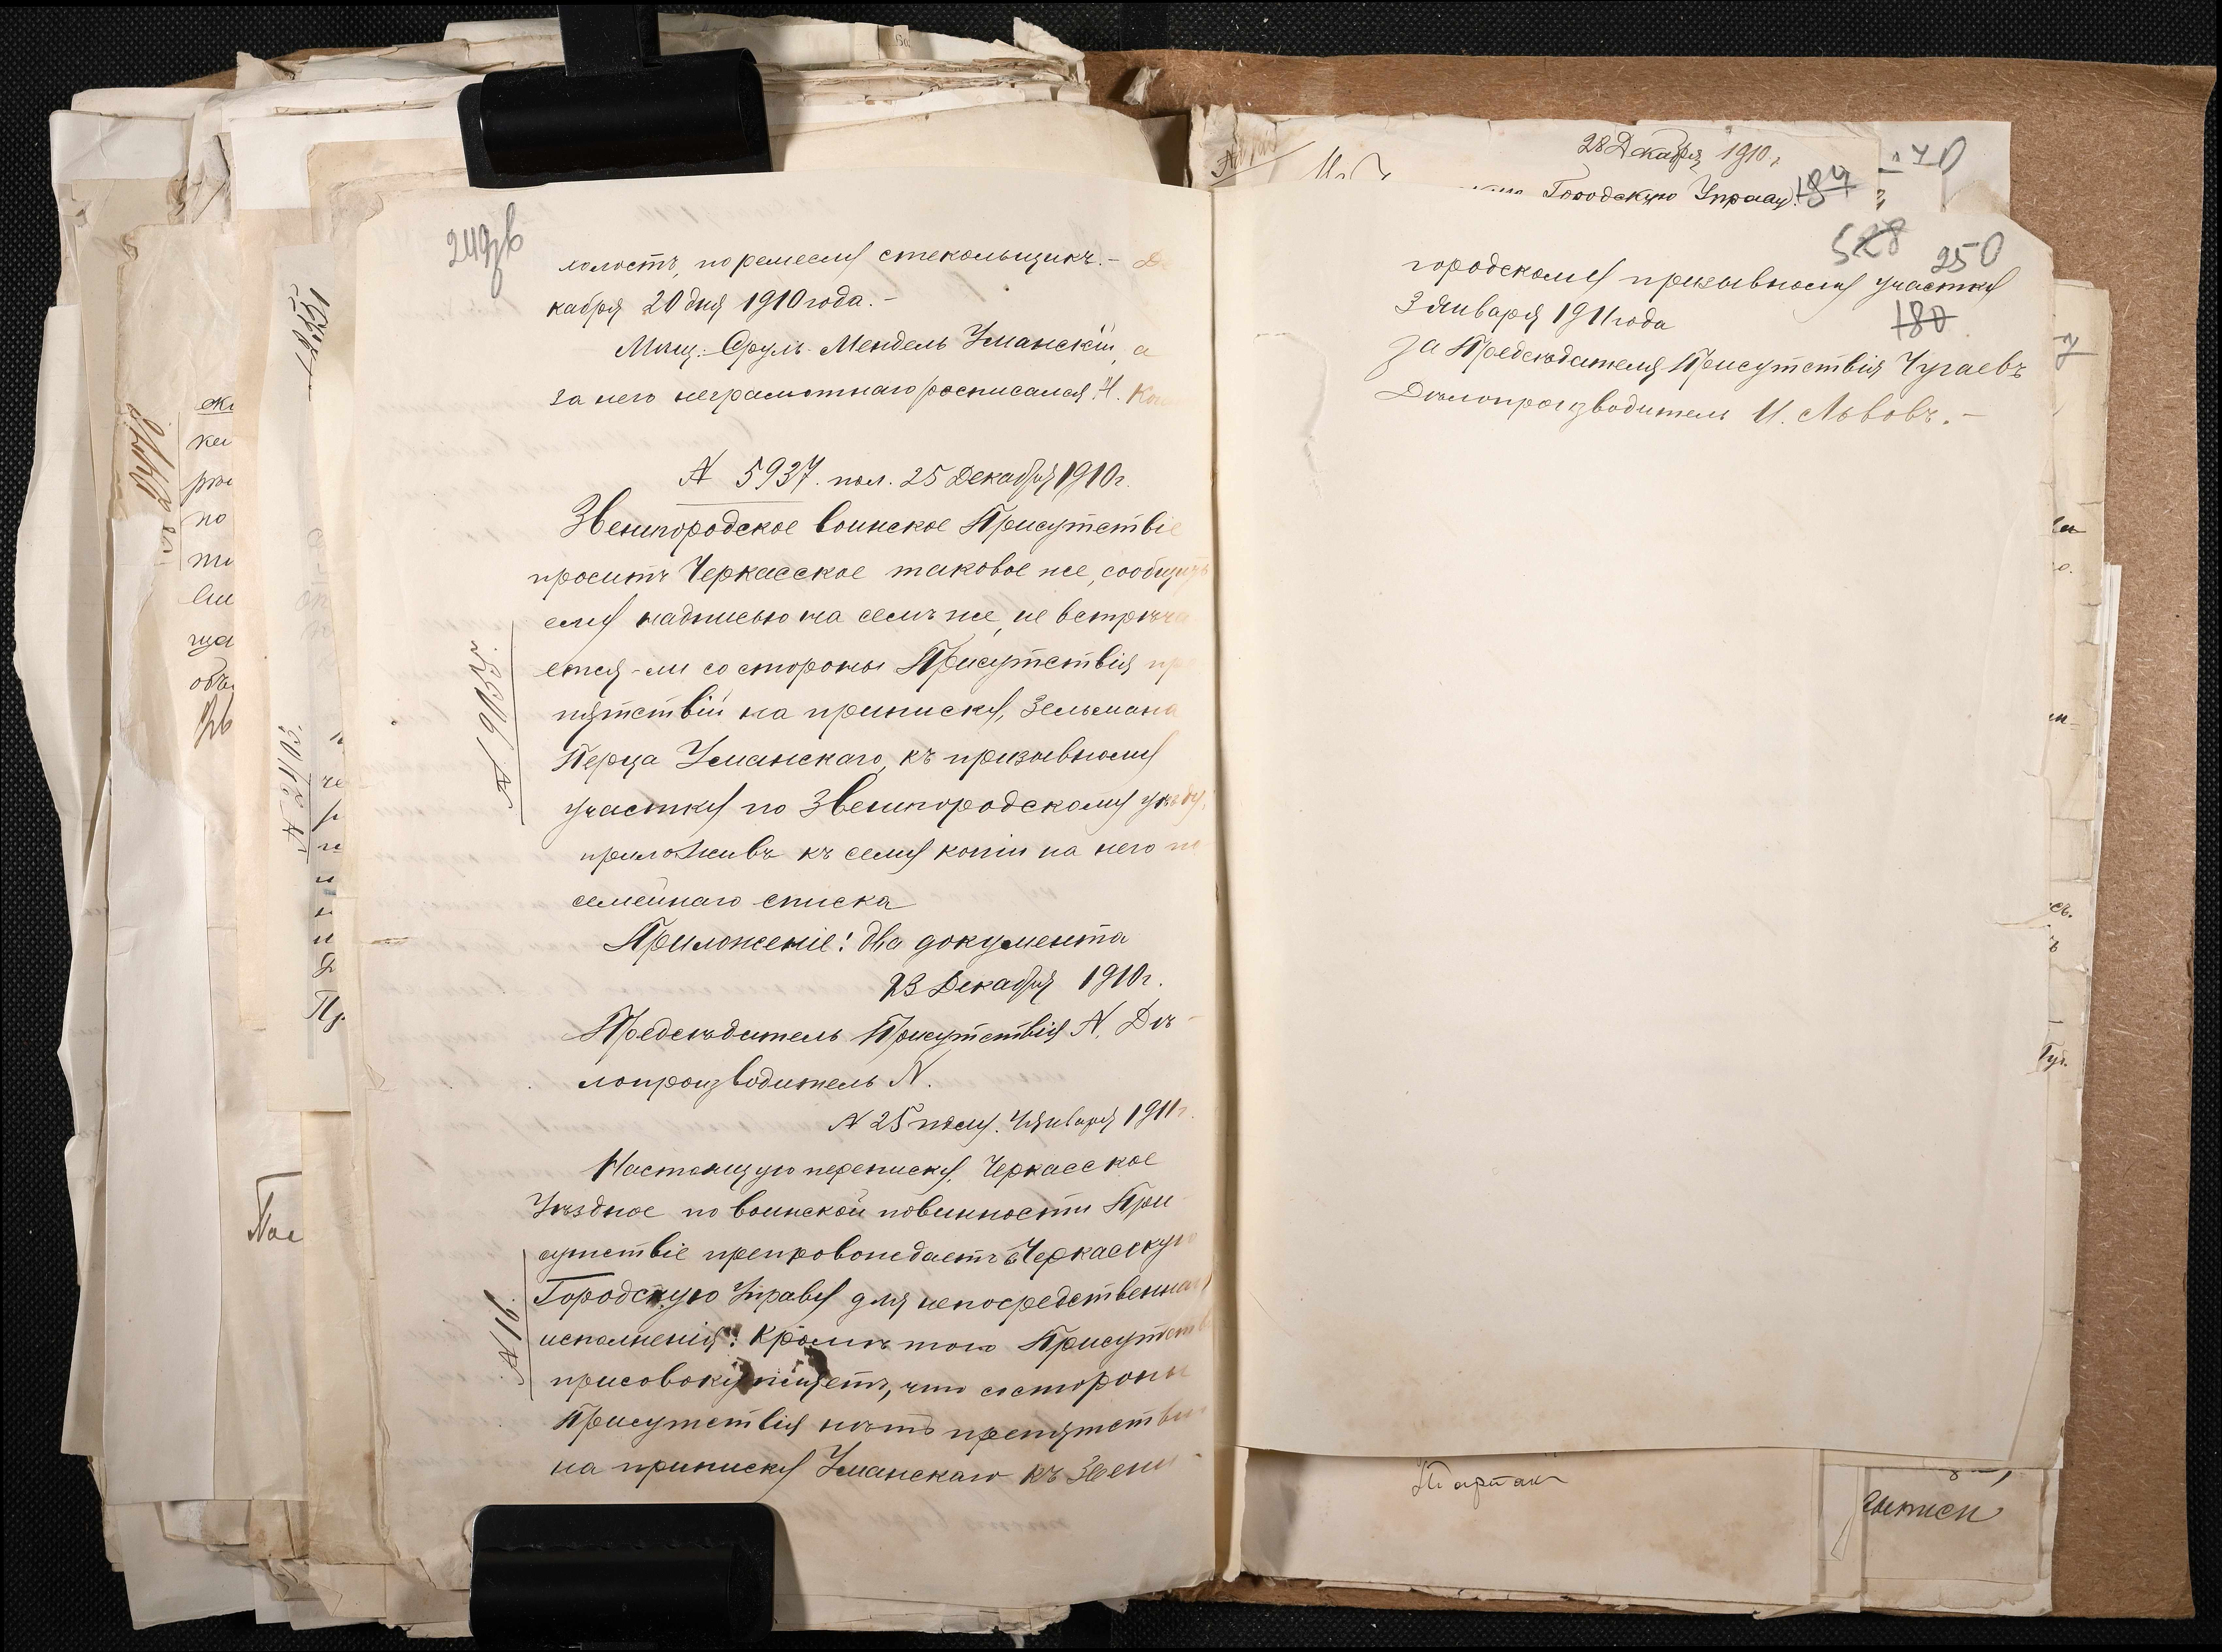 249 зв
холостъ, по ремеслу стекольщикъ. – Де
кабря 20 дня 1910 года. –
Мѣщ. Сруль-Мендель Уманскій, а
за него неграмотнаго росписался Н.
N 5937. пол. 25 Декабря 1910 г.
Звенигородское воинское Присутствіе
проситъ Черкасское таковое же, сообщить
ему надписью на семъ же, не встрѣча
ется-ли со стороны Присутствія пре
пятствій на приписку, Зельмана
N. 9155.
Перца Уманскаго, къ призывному
участку по Звенигородскому уѣзду,
приложивъ къ сему копіи на него по
семейнаго списка
Приложеніе: два документа
23 Декабря 1910 г.
Предсѣдатель Присутствія N. Дѣ-
лопроизводитель N.
N 25 полу. 4 Января 1911 г.
Настоящую переписку, Черкасское
Уѣздное по воинской повинности При
сутствіе препровождаетъ въ Черкасскую
Городскую Управу для непосредственнаго
N 16.
исполненія. Кромѣ того Присутств
присовокупляетъ, что со стороны
Присутствія нѣтъ препятствій
на приписку Уманскаго къ Звени-
28 Декабря 1910 г.
Городскую Управу.
187
70
528
250
городскому призывному участку
3 Января 1911 года
180
За Предсѣдателя Присутствія Чугаевъ
Дѣлопроизводитель И. Львовъ. –
N 2403.